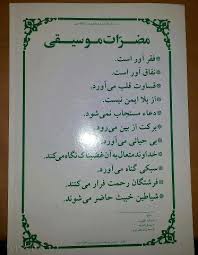 مضرّات موسیقی
* فقر آور است.
* نفاق آور است.
* قساوت قلب می‌آورد.
* از بلا ایمن نیست.
* دعاء مستجاب نمی‌شود.
* برکت از بین می‌رود.
* بی حیائی می‌آورد.
* خداوند متعال به آن غضبناک نگاه می‌کند.
* سبکی گناه می‌آورد.
* فرشتگان رحمت فرار می‌کنند.
* شیاطین خبیث حاضر می‌شوند.